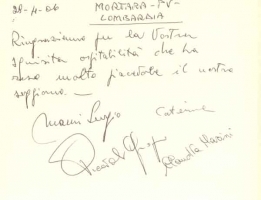 28-4-06 MORTARA-PV-
LOMBARDIA
Ringraziamo per la Vostra
squisita ospitalità che ha
reso molto piacevole il nostro
soggiorno —
Sergio Caterina
Claudia Marini